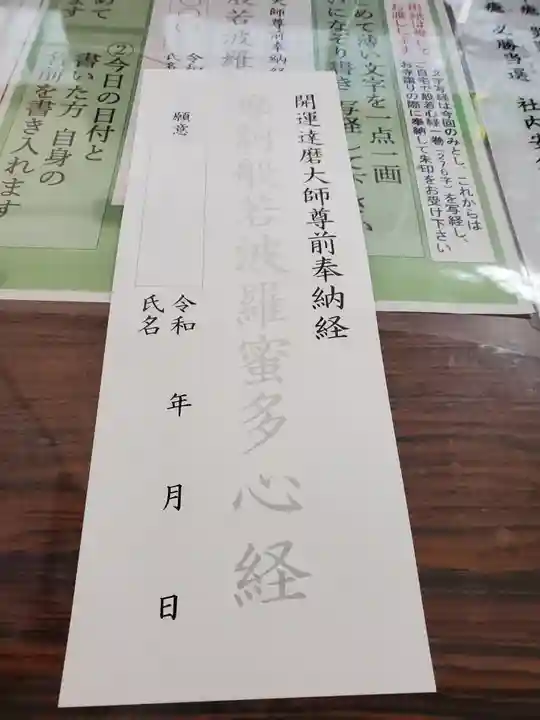 開運達磨大師尊前奉納経
摩訶般若波羅蜜多心経
願意
令和 年 月 日
氏名
大師尊前奉納経
般若波羅
令和
氏名
②今日の日付と
書いた方 自身の
名前を書き入れます
めて薄い文字を一点一画
文字写経は今回のみとし、これからは
ご自宅で般若心経一巻(276字)を写経し、
お寺詣りの際に奉納して朱印をお受け下さい
必勝当選
社内安